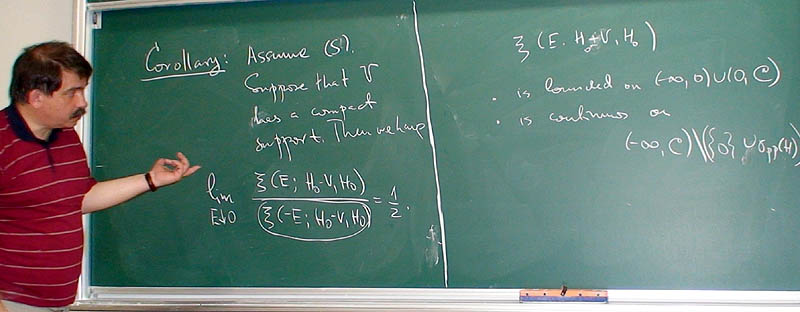 Corollary: Assume (S').
Suppose that V
has a compact
support. Then we have
lim E↓0 ξ(E; H₀-V, H₀) / ξ(-E; H₀-V, H₀) = 1/2.
ξ(E. H₀±V, H₀)
· is bounded on (-∞, 0)∪(0, C)
· is continuos on
(-∞, C)\({0} ∪ σpp(H))